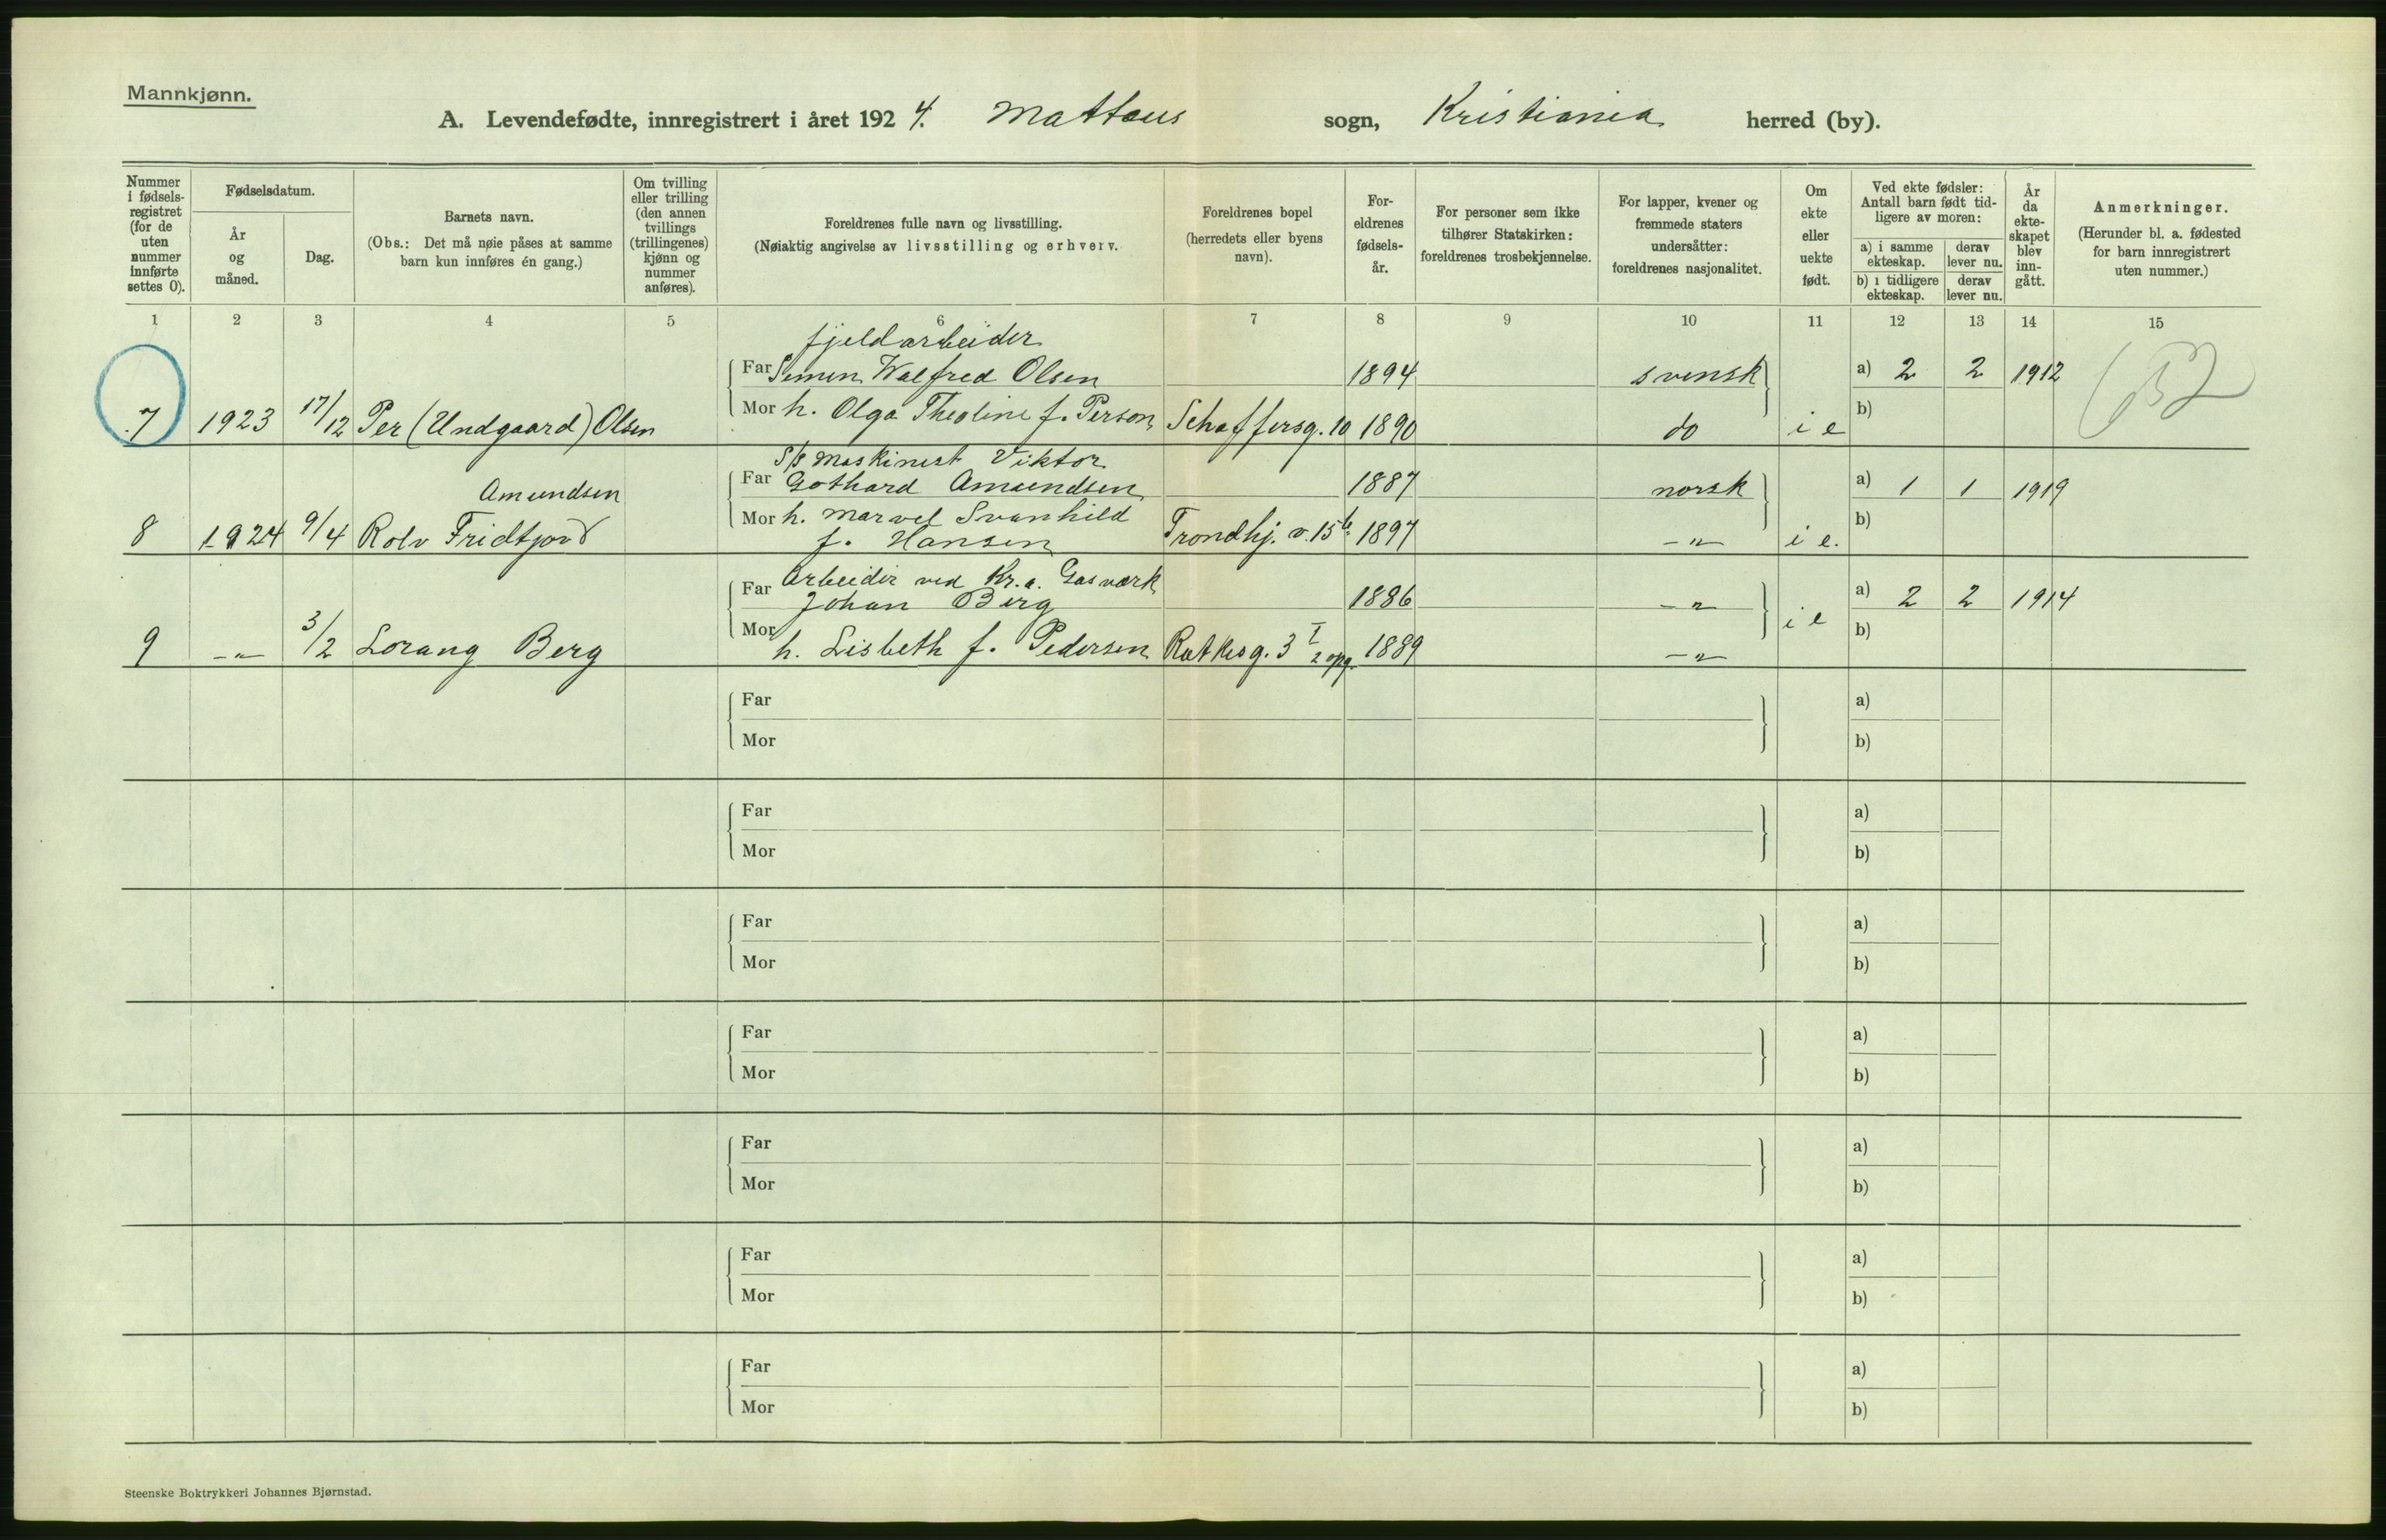 Mannkjønn.
A. Levendefødte, innregistrert i året 1924. Mattæus sogn, Kristiania herred (by).
Nummer i fødselsregistret (for de uten nummer innførte settes 0).
Fødselsdatum.
År og måned.
Dag.
Barnets navn.
(Obs.: Det må nøie påses at samme barn kun innføres én gang.)
Om tvilling eller trilling (den annen tvillings (trillingenes) kjønn og nummer anføres).
Foreldrenes fulle navn og livsstilling.
(Nøiaktig angivelse av livsstilling og erhverv.
Foreldrenes bopel (herredets eller byens navn).
Foreldrenes fødselsår.
For personer som ikke tilhører Statskirken: foreldrenes trosbekjennelse.
For lapper, kvener og fremmede staters undersåtter: foreldrenes nasjonalitet.
Om ekte eller uekte født.
Ved ekte fødsler: Antall barn født tidligere av moren:
a) i samme ekteskap.
derav lever nu.
b) i tidligere ekteskap.
derav lever nu.
År da ekteskapet blev inngått.
Anmerkninger.
(Herunder bl. a. fødested for barn innregistrert uten nummer.)
1 2 3 4 5 6 7 8 9 10 11 12 13 14 15
fjeldarbeider
Far Simen Walfred Olsen 1894 svensk a) 2 2 1912
7 1923 17/12 Per (Undgaard) Olsen Mor h. Olga Theoline f. Person Schaffersg. 10 1890 do i e b)
S/s maskinist Viktor
Amundsen Far Gothard Amundsen 1887 norsk a) 1 1 1919
8 1924 9/4 Rolv Fridtjov Mor h. Marvel Svanhild f. Hansen Trondhj. v. 15 b. 1897 -"- i e. b)
Arbeider ved Kr.a. Gasværk
Far Johan Berg 1886 -"- a) 2 2 1914
9 -"- 3/2 Lorang Berg Mor h. Lisbeth f. Pedersen Ratkesg. 3 I 2 opg. 1889 -"- i e b)
Far a)
Mor b)
Far a)
Mor b)
Far a)
Mor b)
Far a)
Mor b)
Far a)
Mor b)
Far a)
Mor b)
Far a)
Mor b)
Steenske Boktrykkeri Johannes Bjørnstad.